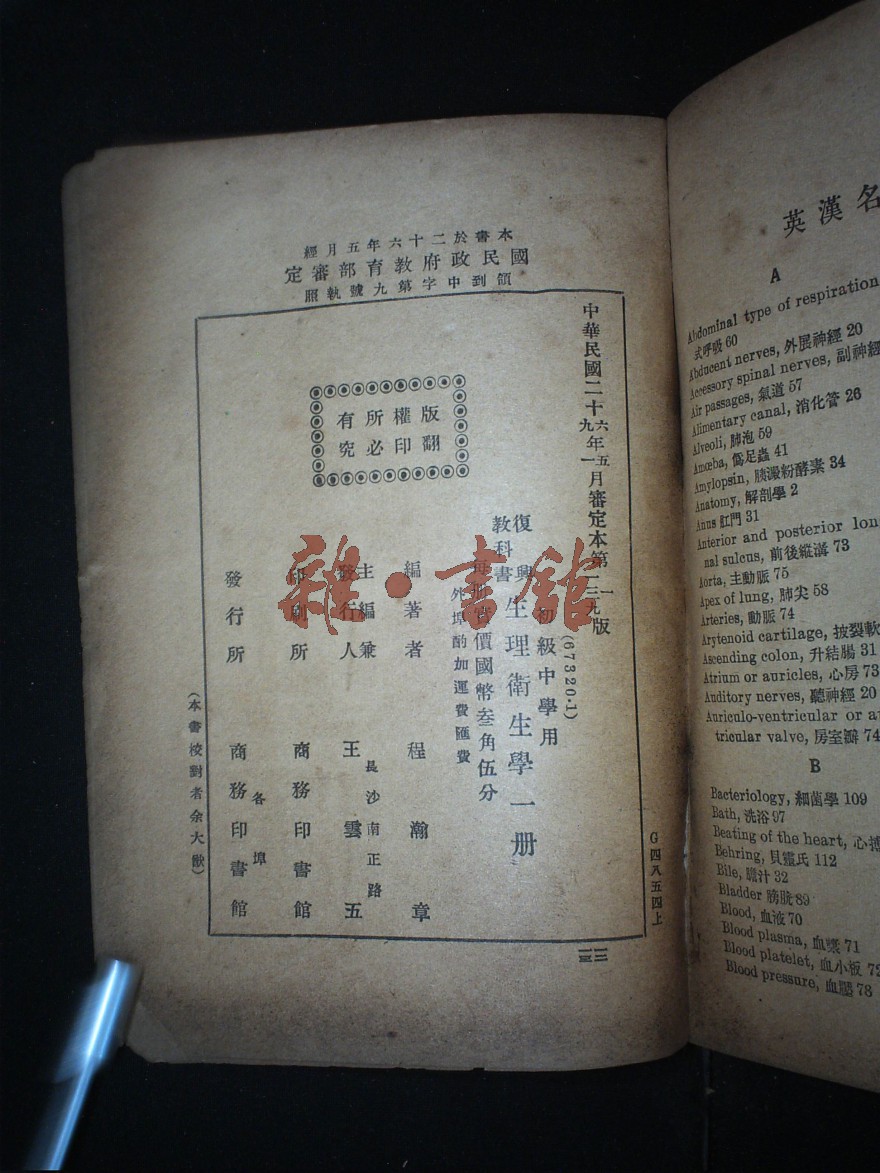 本書於二十六年五月經
國民政府教育部審定
領到中字第九號執照
中華民國二十六年五月審定本第一版
九 一 三九
版權所有
翻印必究
(67320·1)
初級中學用
復興教科書 生理衛生學一册
每册實價國幣叁角伍分
外埠酌加運費匯費
編著者 程瀚章
主編兼發行人 王雲五
長沙南正路
印刷所 商務印書館
各埠
發行所 商務印書館
(本書校對者余大猷)
G四八五四上
英漢名
A
Abdominal type of respiration
式呼吸 60
Abducent nerves, 外展神經 20
Accessory spinal nerves, 副神經
Air passages, 氣道 57
Alimentary canal, 消化管 26
Alveoli, 肺泡 59
Amœba, 僞足蟲 41
Amylopsin, 胰澱粉酵素 34
Anatomy, 解剖學 2
Anus 肛門 31
Anterior and posterior lon
nal sulcus, 前後縱溝 73
Aorta, 主動脈 75
Apex of lung, 肺尖 58
Arteries, 動脈 74
Arytenoid cartilage, 披裂軟
Ascending colon, 升結腸 31
Atrium or auricles, 心房 73
Auditory nerves, 聽神經 20
Auriculo-ventricular or a
tricular valve, 房室瓣 74
B
Bacteriology, 細菌學 109
Bath, 洗浴 97
Beating of the heart, 心搏
Behring, 貝靈氏 112
Bile, 膽汁 32
Bladder 膀胱 89
Blood, 血液 70
Blood plasma, 血漿 71
Blood platelet, 血小板 72
Blood pressure, 血壓 78
雜·書館